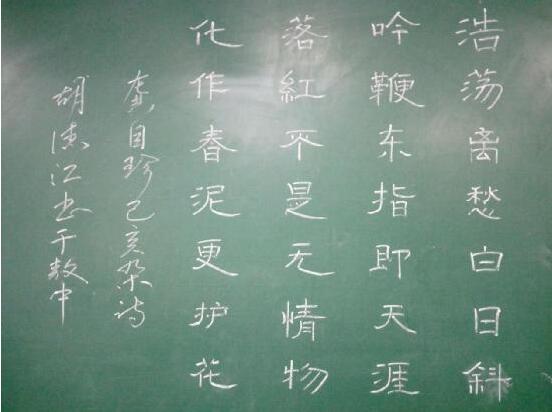 浩荡离愁白日斜
吟鞭东指即天涯
落紅不是无情物
化作春泥更护花
龚自珍己亥杂诗
胡德江书于教中